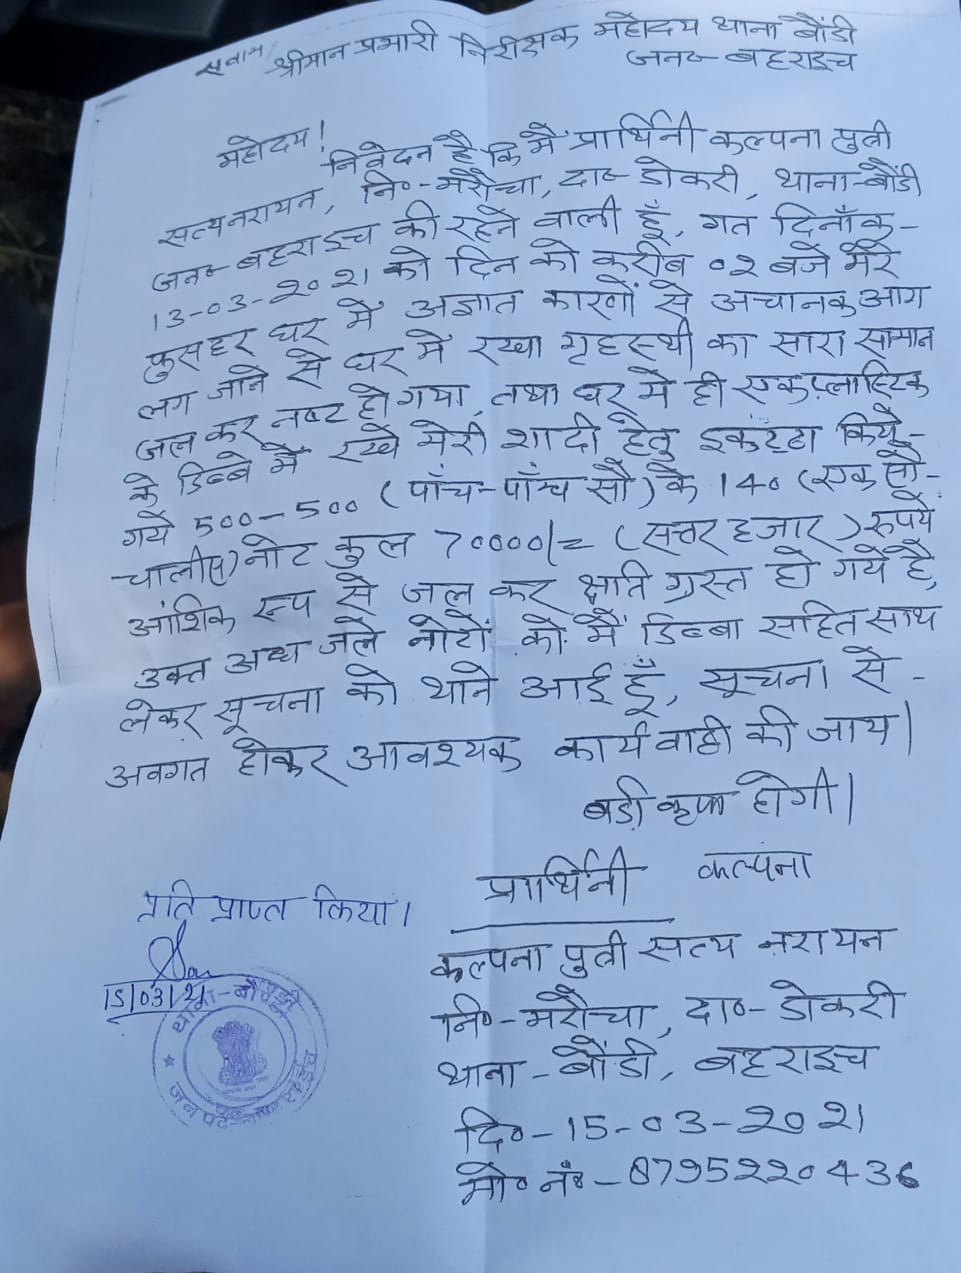 सेवामें श्रीमान प्रभारी निरीक्षक महोदय थाना बौंडी
जन०- बहराइच
महोदय!
निवेदन है कि मैं प्रार्थिनी कल्पना पुत्री
सत्यनरायन, नि०-मरौचा, दा०- डोकरी, थाना-बौंडी
जन०- बहराइच की रहने वाली हूँ, गत दिनाँक-
13-03-2021 को दिन को करीब 02 बजे मेरे
फुसहर घर में अज्ञात कारणों से अचानक आग
लग जाने से घर में रखा गृहस्थी का सारा सामान
जल कर नष्ट हो गया, तथा घर में ही एक प्लास्टिक
के डिब्बे में रखे मेरी शादी हेतु इकट्ठा किये-
गये 500-500 (पाँच-पाँच सौ) के 140 (एक सौ-
चालीस) नोट कुल 70000/= (सत्तर हजार) रुपये
आंशिक रूप से जल कर क्षति ग्रस्त हो गये है,
उक्त अध जले नोटों को मैं डिब्बा सहित साथ
लेकर सूचना को थाने आई हूँ, सूचना से-
अवगत होकर आवश्यक कार्यवाही की जाय।
बड़ी कृपा होगी।
प्रार्थिनी कल्पना
प्रति प्राप्त किया।
15/03/21
थाना-बौण्डी
जनपद-बहराइच
कल्पना पुत्री सत्य नरायन
नि०-मरौचा, दा०- डोकरी
थाना-बौंडी, बहराइच
दि०-15-03-2021
मो० नं०-8795220436